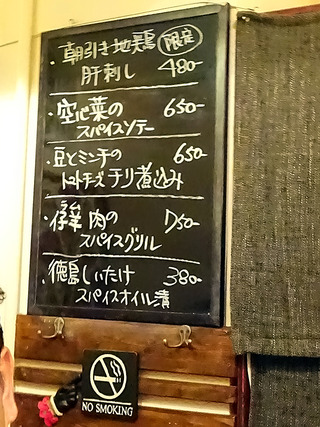 ・朝引き地鶏 限定
肝刺し 480-
・空心菜の 650-
スパイスソテー
・豆とミンチの 650-
トマトチーズチリ煮込み
肉の
スパイスグリル
・徳島しいたけ 380-
スパイスオイル漬
NO SMOKING